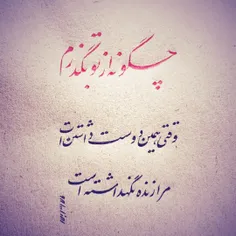 چگونه از تو بگذرم
وقتی همین دوست داشتن ات
مرا زنده نگهداشته است